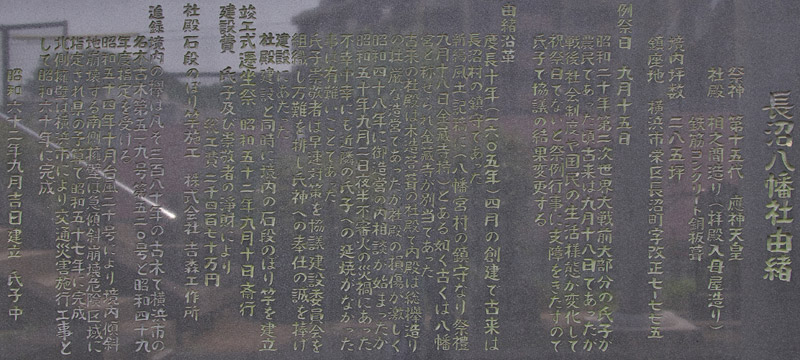 長沼八幡社由緒
祭神 第十五代 應神天皇
社殿 相之間造り(拝殿入母屋造り)
鉄筋コンクリート銅板葺
境内坪数 二八五坪
鎮座地 横浜市栄区長沼町字改正七一七七五
例祭日 九月十五日
昭和二十年第二次世界大戦前大部分の氏子が
農民であった頃古来は九月十八日であったが
戦後社会制度や国民の生活様態が変化して
祝祭日でないと祭例行事に支障をきたすので
氏子で協議の結果変更する
由緒沿革
慶長十年(一六〇五年)四月の創建で古来は
長沼村の鎮守であった
新編風土記稿に(八幡宮村の鎮守なり祭禮
九月十八日金蔵寺持)とある如く古くは八幡
宮と称せられ金蔵寺が別当であった
古来の社殿は木造茅葺の社殿で内殿は総欅造り
の壮厳な造営であったが社殿の損傷が激しく
昭和四十八年に御造営の内相談が始まったが
昭和五十年九月二日夜半不審火の災禍にあった
不幸中幸にも近隣の氏子への延焼がなかった
事は有難いことであった
氏子崇敬者は早速対策を協議建設委員会を
組織し万難を排し氏神への奉仕の誠を捧げ
建設にあたった
社殿建設と同時に境内の石段のぼり竿を建立
竣工式遷座祭 昭和五十二年九月十日斎行
建設費 氏子及び崇敬者の浄財により
総工費 二千四百七十万円
社殿石段のぼり竿施工 株式会社 吉森工作所
追録 境内の樹は凡そ三百八十年の古木で横浜市の
名木古木第五〇九号第五一〇号と昭和四十九
年度指定を受ける
昭和五十四年十月台風二十号により境内傾斜
地崩壊する南側斜壁は急傾斜崩壊危険区域に
指定され県の予算で昭和五十七年に完成
北側斜壁は横浜市により交通災害施行工事と
して昭和六十年に完成
昭和六十二年九月吉日建立 氏子中